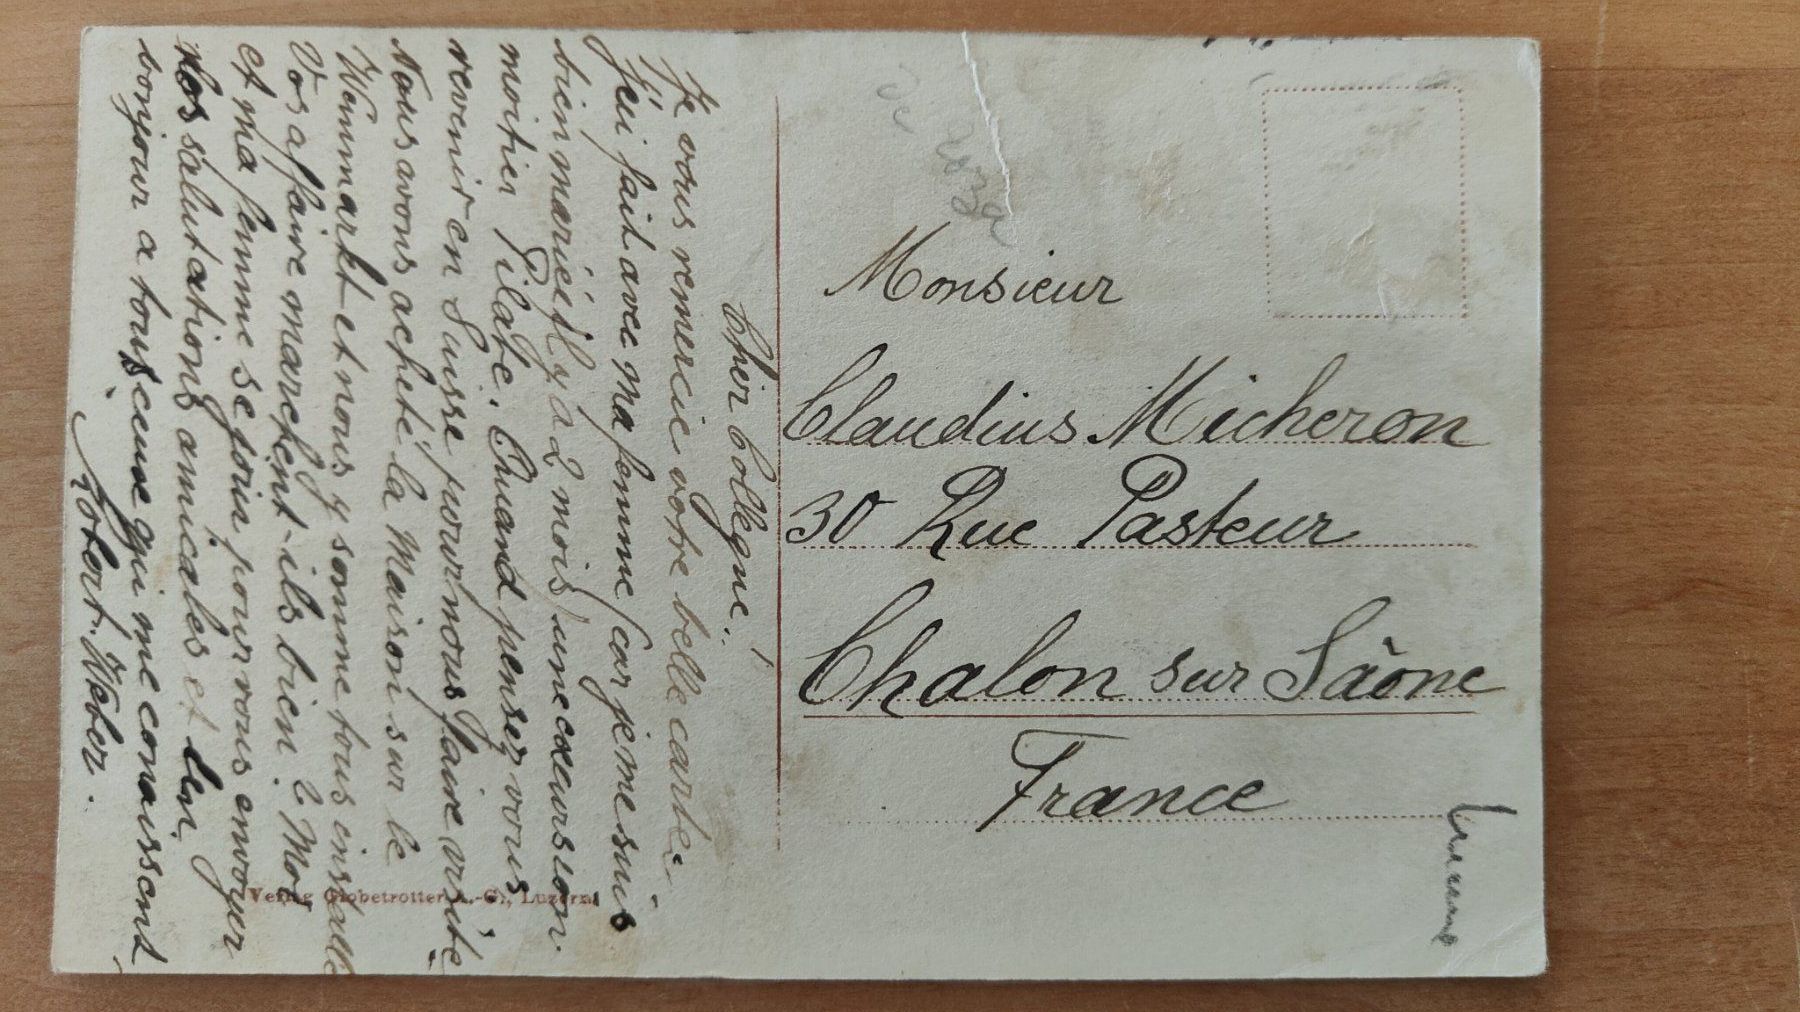 Cher Collegue!
Je vous remercie votre belle carte.
J'ai fait avec ma femme (car je me suis
bien marié il y a 2 mois) une excursion
moitier Pilate. Quand pensez vous
revenir en Suisse pour nous faire visite
Nous avons acheté la Maison sur le
et nous y somme tous install
Vos affaire marchent-ils bien? Moi
et ma femme se foin pour vous envoyer
nos salutations amicales et un
bonjour a tous ceux qui me conaissent
Robert Weber.
Verlag Globetrotter A.-G., Luzern
Monsieur
Claudius Micheron
30 Rue Pasteur
Chalon sur Sâone
France